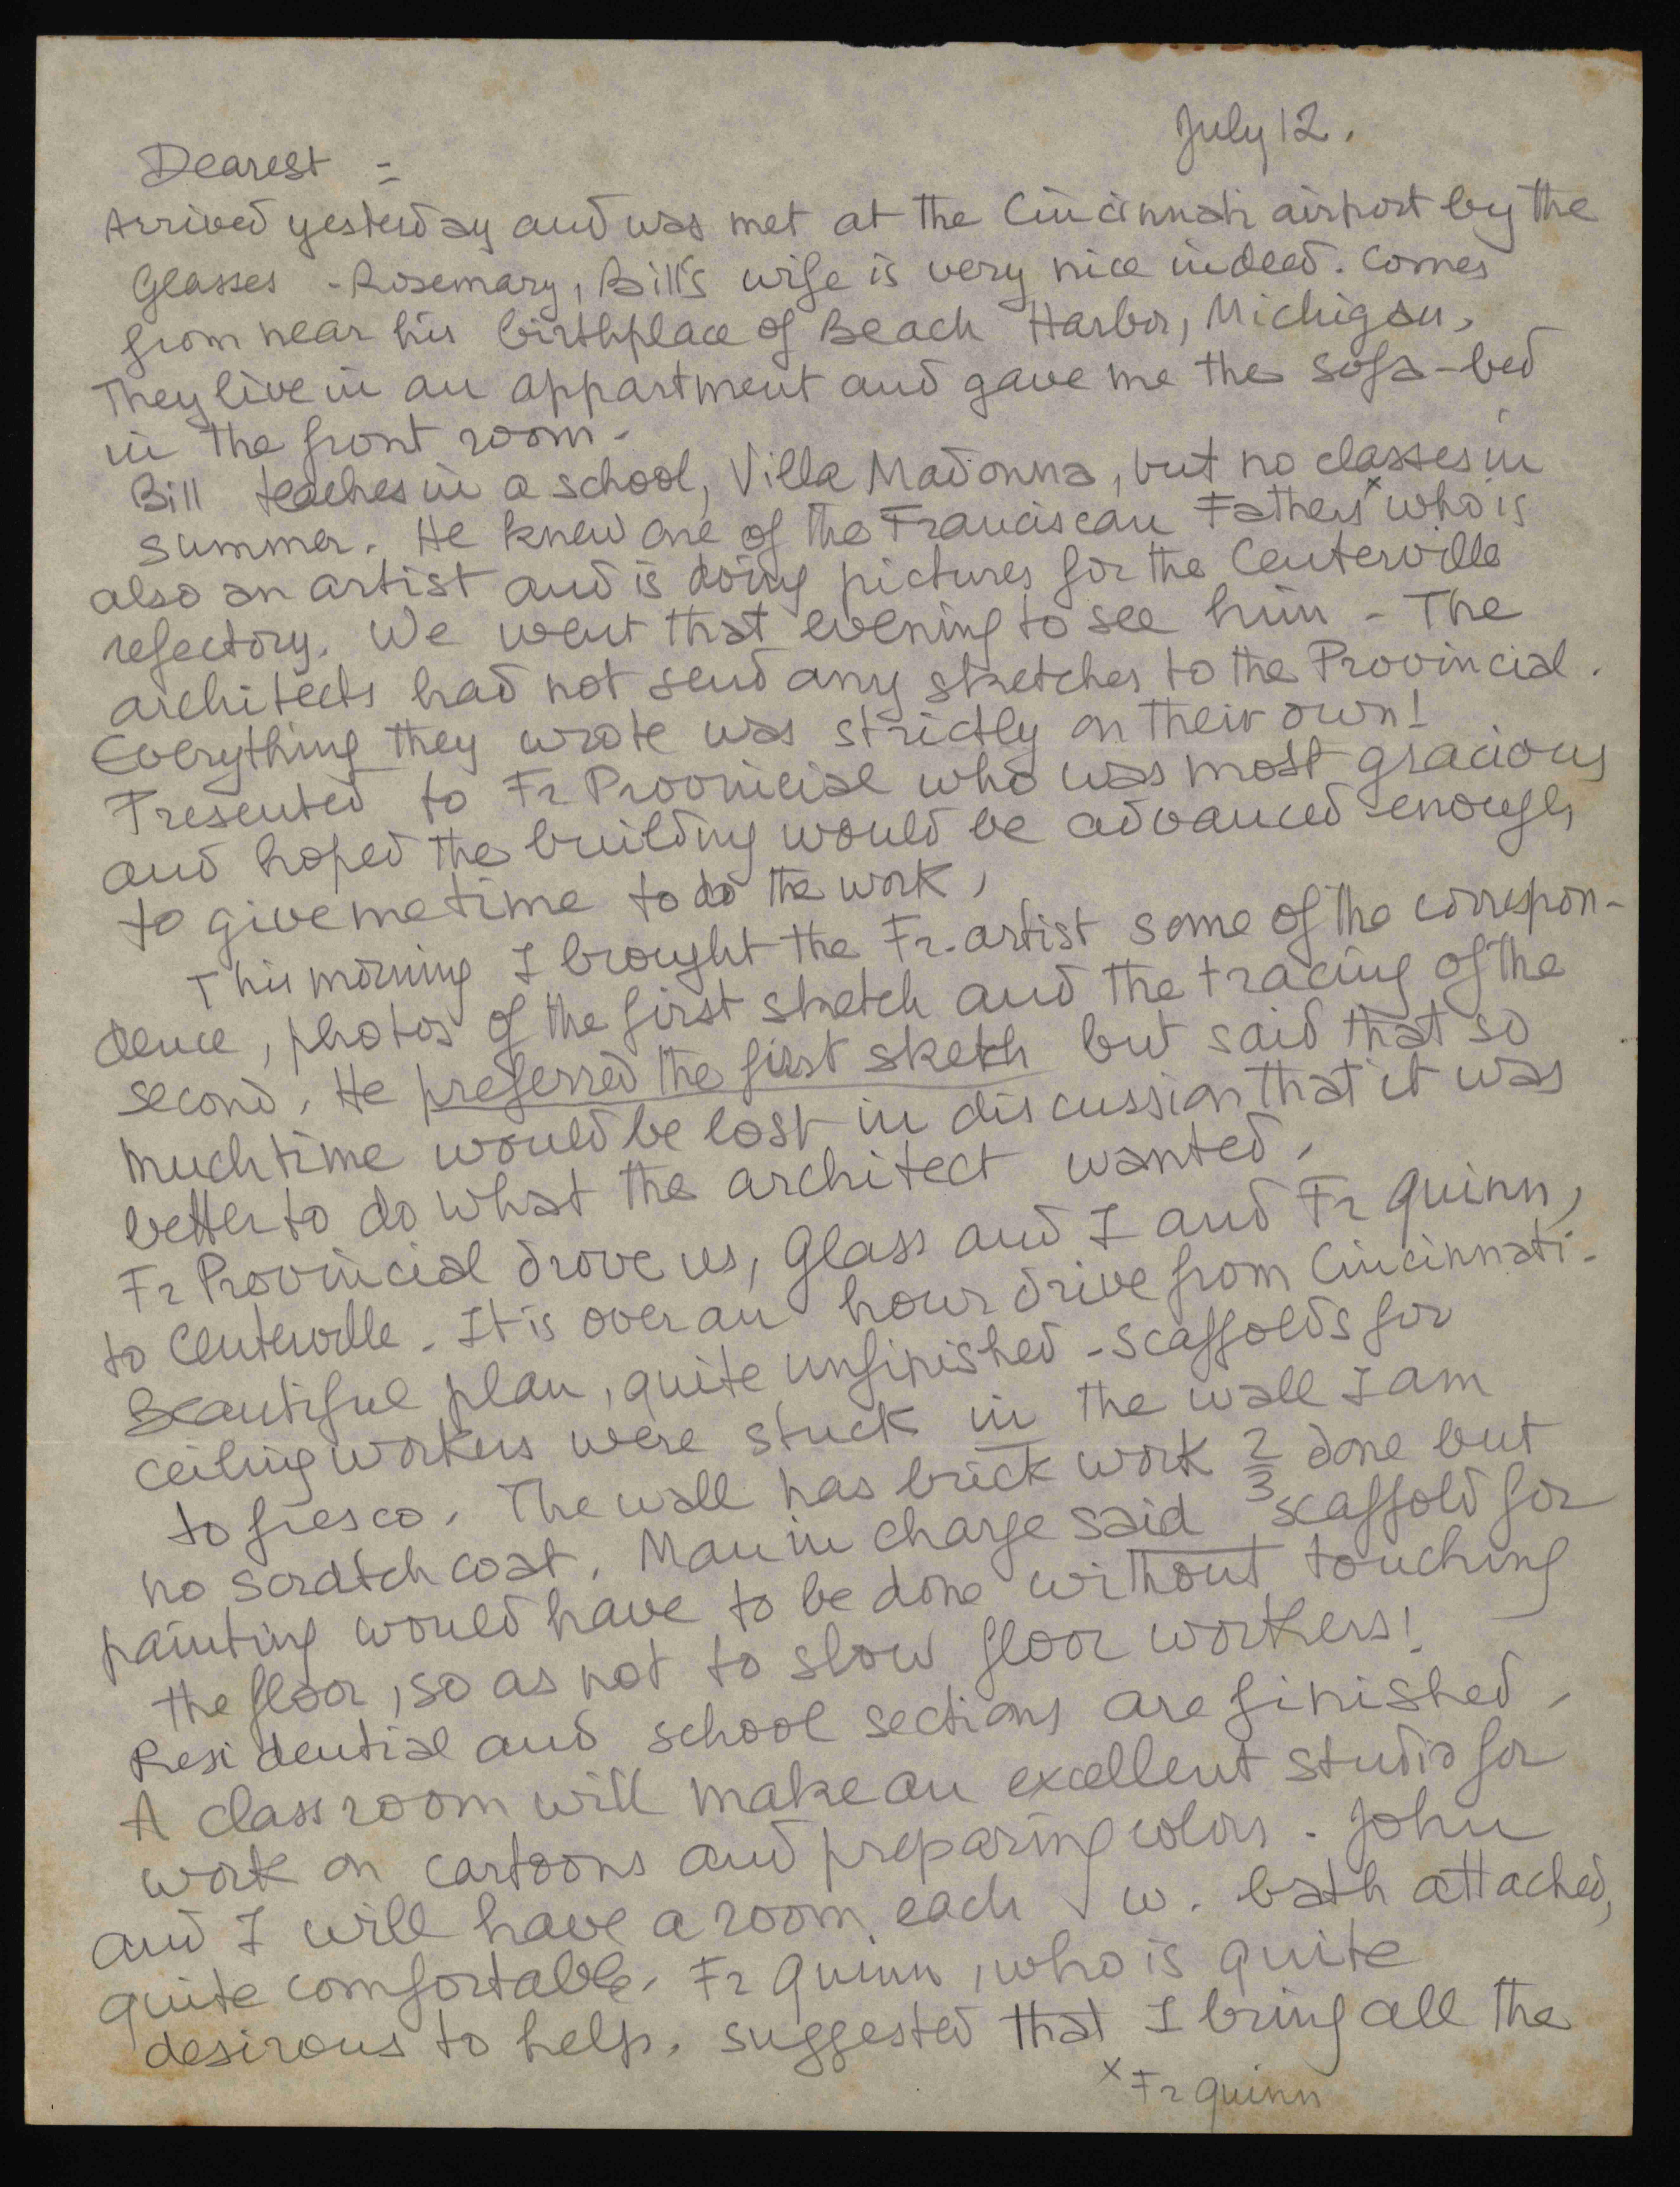 July 12.
Dearest =
Arrived yesterday and was met at the Cincinnati airport by the
Glasses - Rosemary, Bill's wife is very nice indeed. Comes
from near his birthplace of Beach Harbor, Michigan,
They live in an appartment and gave me the sofa-bed
in the front room -
Bill teaches in a school, Villa Madonna, but no classes in
summer. He knew one of the Franciscan Fathers x who is
also an artist and is doing pictures for the Centerville
refectory. We went that evening to see him - The
architects had not send any sketches to the Provincial.
Everything they wrote was strictly on their own!
Presented to Fr Provincial who was most gracious
and hoped the building would be advanced enough
to give me time to do the work,
This morning I brought the Fr. artist some of the correspon-
dence, photos of the first sketch and the tracing of the
second. He preferred the first sketch but said that so
much time would be lost in discussion that it was
better to do what the architect wanted.
Fr Provincial drove us, Glass and I and Fr Quinn,
to Centerville. It is over an hour drive from Cincinnati -
Beautiful plan, quite unfinished - scaffolds for
ceiling workers were stuck in the wall I am
to fresco. The wall has brick work 2/3 done but
no scratch coat. Man in charge said scaffold for
painting would have to be done without touching
the floor, so as not to slow floor workers!
Residential and school sections are finished,
A class room will make an excellent studio for
work on cartoons and preparing colors. John
and I will have a room each w. bath attached,
quite comfortable. Fr Quinn, who is quite
desirous to help, suggested that I bring all the
x Fr Quinn